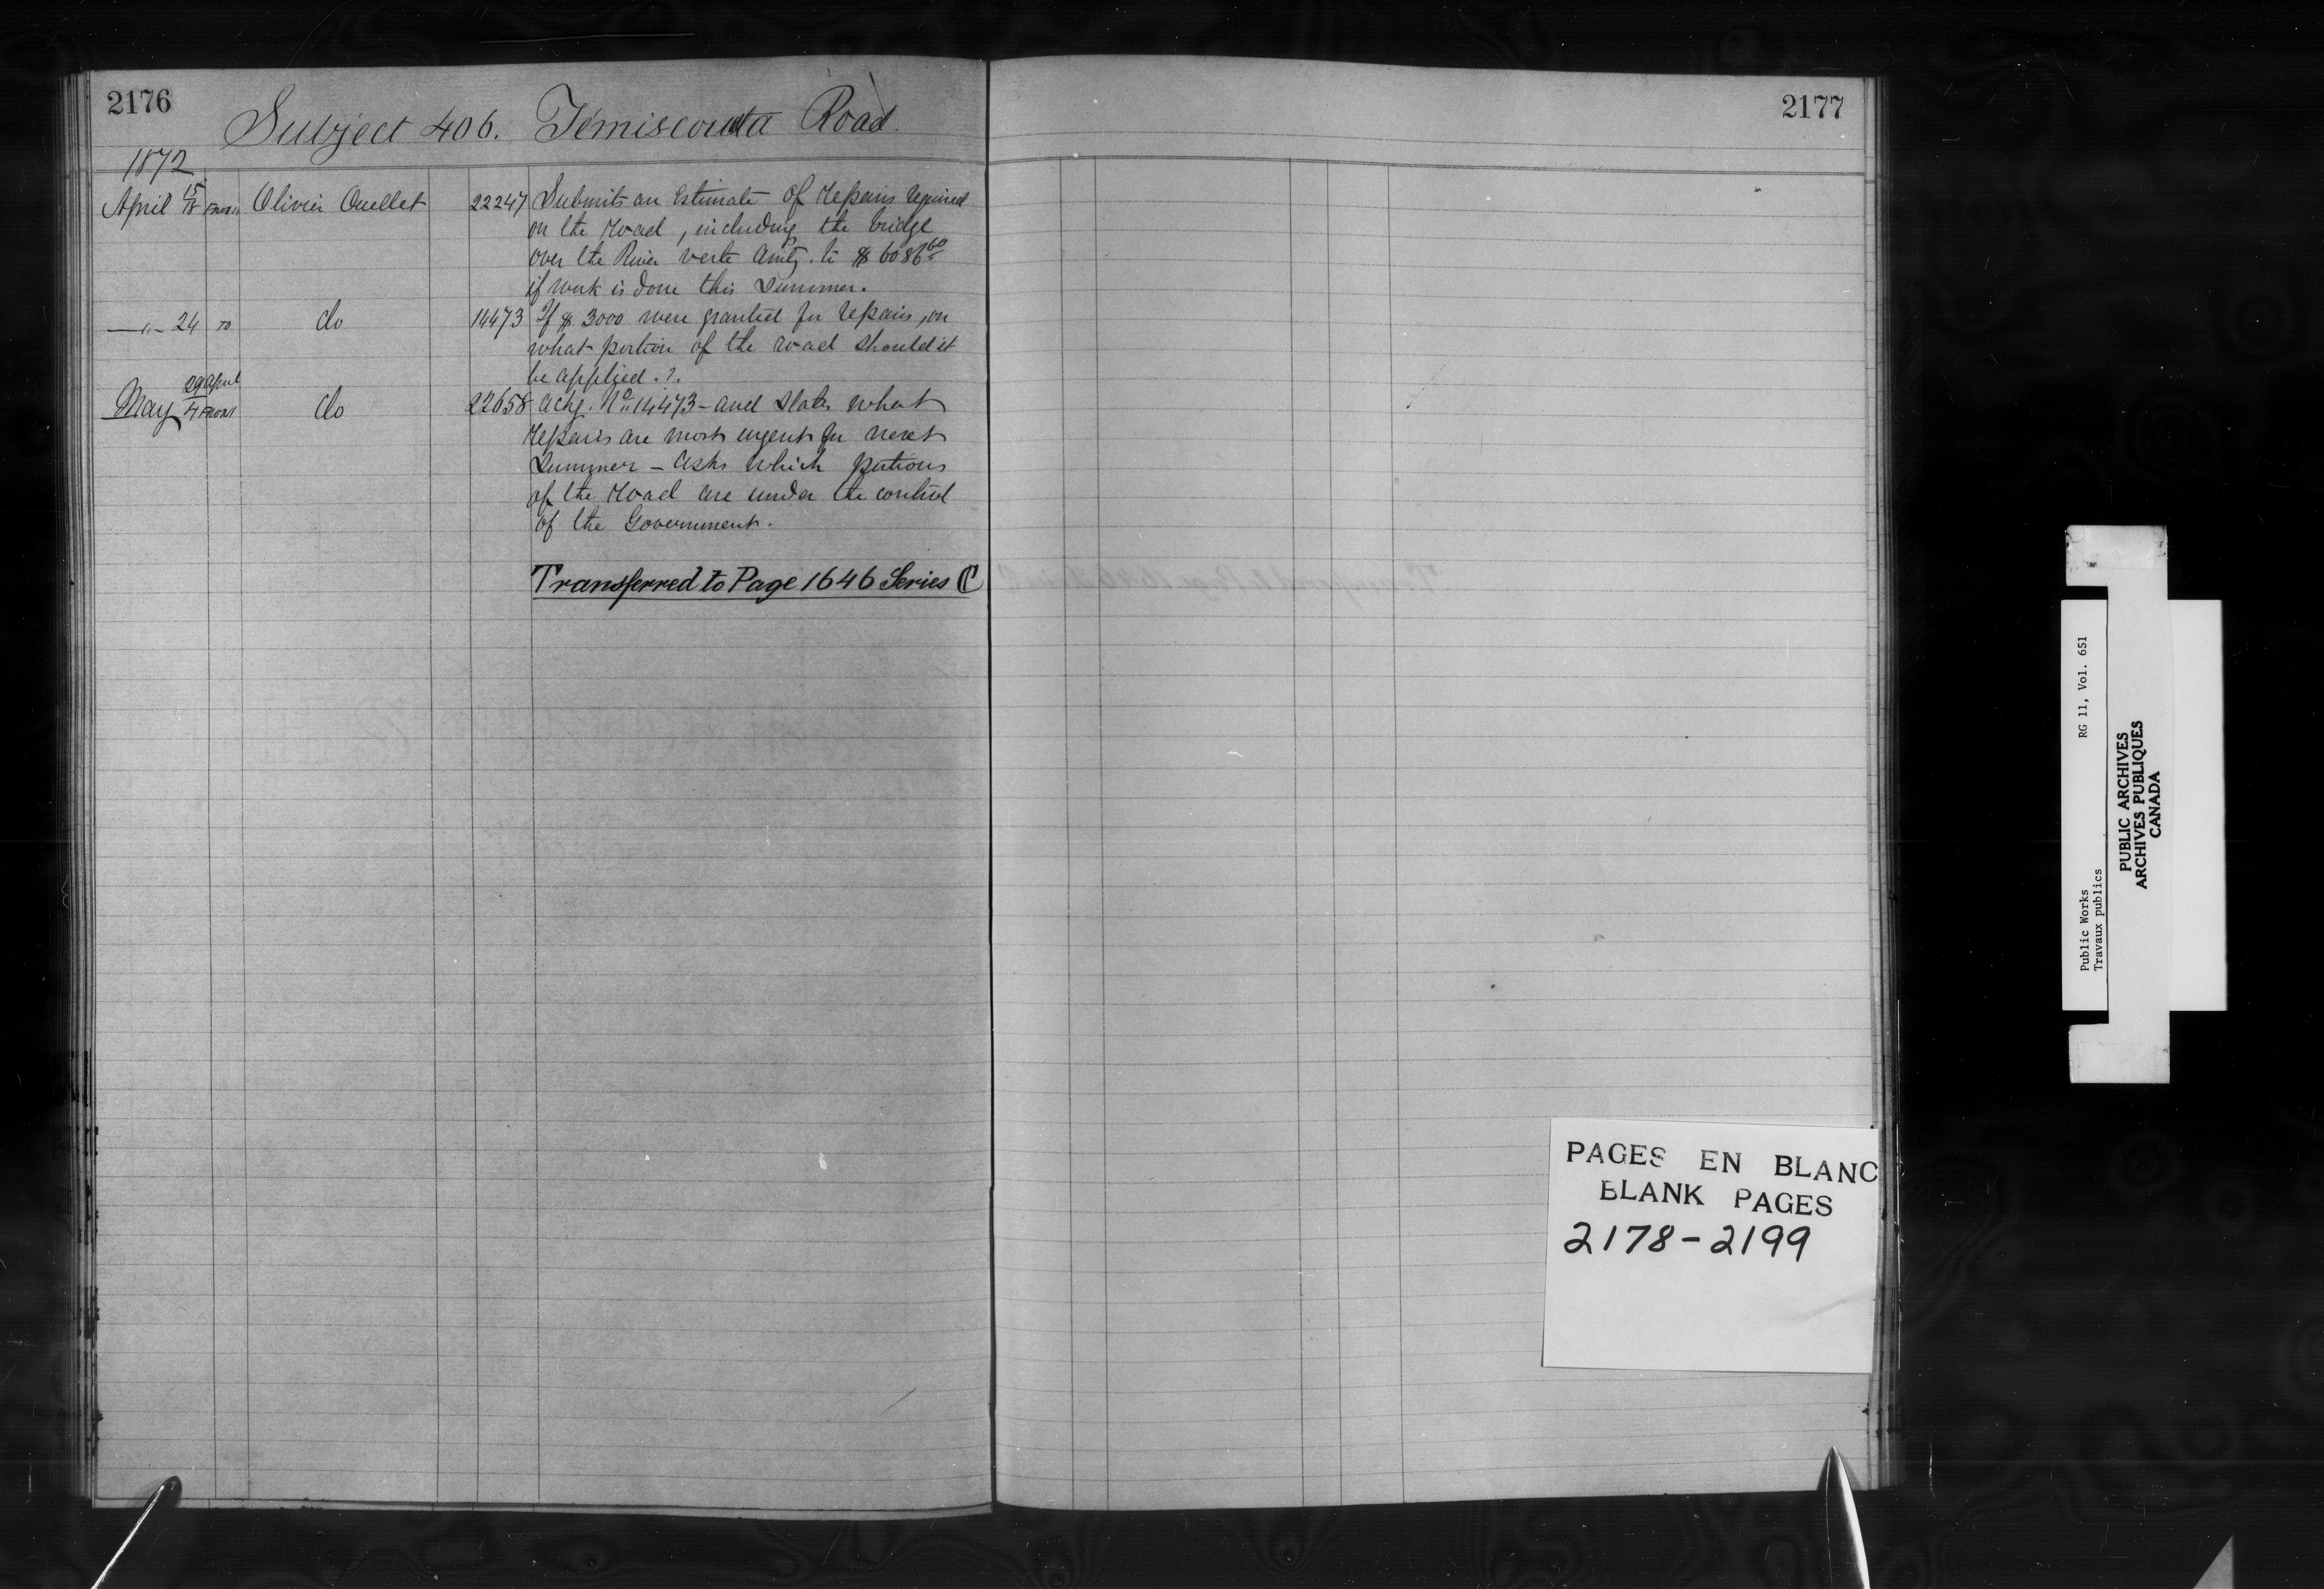 2176
Subject 406. Témiscouata Road.
1872
April 15/18 From Olivier Ouellet 22247 Submits an Estimate of Repairs required
on the Road, including the bridge
over the River verte Amtg. to $6086.60
if work is done this Summer.
—"— 24 To do 14473 If $3000 were granted for repairs, on
what portion of the road should it
be applied.?.
May 29 April/4 From do 22658 Ackg. No 14473 - and States what
Repairs are most urgent for next
Summer - Asks which portions
of the Road are under the control
of the Government.
Transferred to Page 1646 Series C
2177
PAGES EN BLANC
BLANK PAGES
2178-2199
Public Works RG 11, Vol. 651
Travaux publics
PUBLIC ARCHIVES
ARCHIVES PUBLIQUES
CANADA